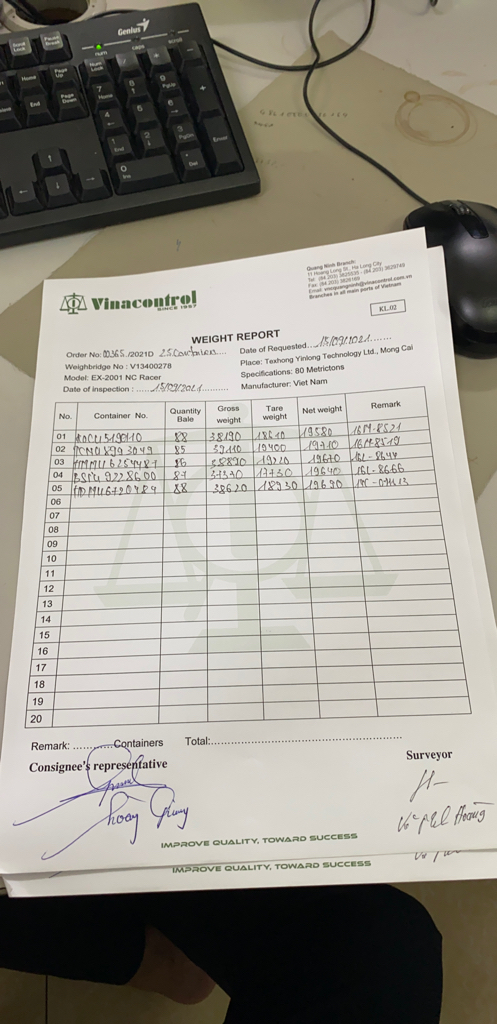 Genius
num
caps
scroll
Scroll Lock
Pause Break
Home
Page Up
End
Page Down
Num Lock
7 Home
9 PgUp
3 PgDn
1 End
0 Ins
Del
Enter
Quang Ninh Branch:
11 Hoang Long St., Ha Long City
Email: vncquangninh@vinacontrol.com.vn
Branches in all main ports of Vietnam
Vinacontrol
SINCE 1957
KL.02
WEIGHT REPORT
Order No: 00365./2021D 25 Containers
Date of Requested 15/09/2021
Weighbridge No : V13400278
Place: Texhong Yinlong Technology Ltd., Mong Cai
Model: EX-2001 NC Racer
Specifications: 80 Metrictons
Date of inspection : 15/09/2021
Manufacturer: Viet Nam
No. Container No. Quantity Bale Gross weight Tare weight Net weight Remark
01 88 38190 18610 19580 16M-8521
02 85 39110 19400 19710 16M-8519
03 86 38890 19220 19670
04 87 37370 17730 19640 16L-8666
05 88 38620 18930 19690
06
07
08
09
10
11
12
13
14
15
16
17
18
19
20
Remark: ............Containers Total:
Consignee's representative
Surveyor
IMPROVE QUALITY, TOWARD SUCCESS
IMPROVE QUALITY, TOWARD SUCCESS